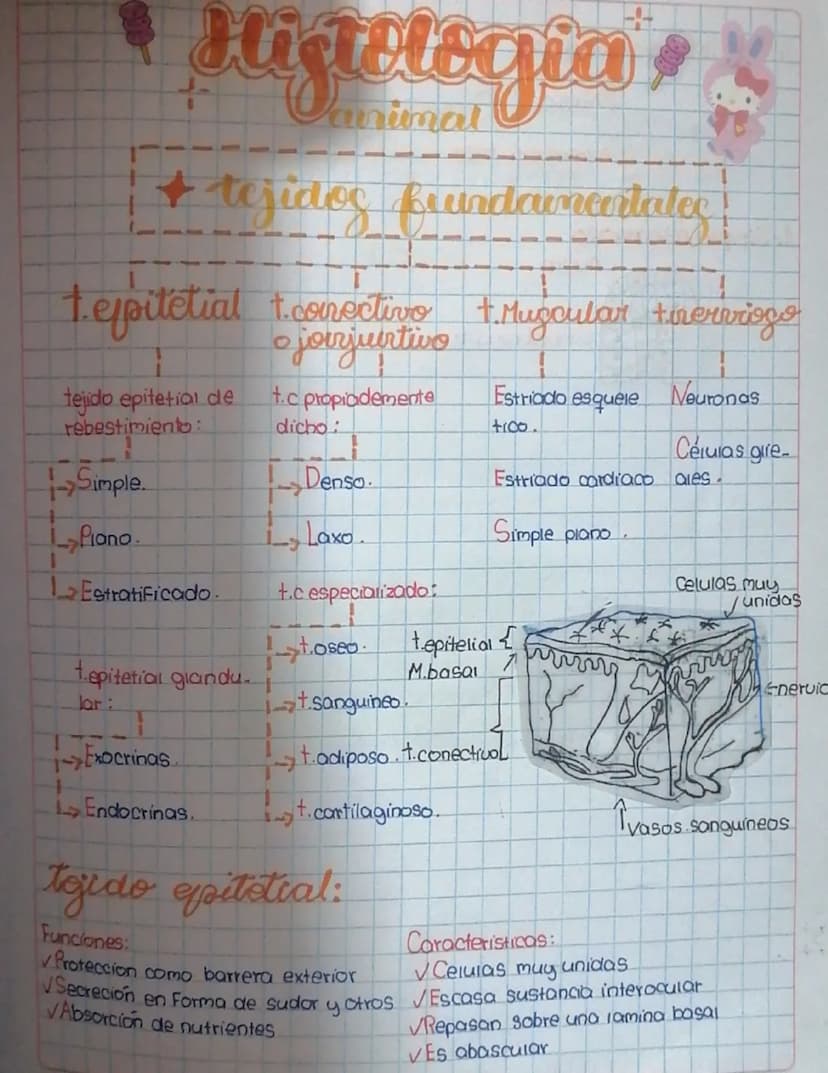 Histología
animal
tejidos fundamentales
t.epitetial
t.conectivo
o jonjuntivo
t.Muscular
t.nervioso
tejido epitetial de
rebestimiento:
Simple.
Plano.
Estratificado.
t.epitetial glandu-
lar:
Exocrinas.
Endocrinas.
t.c propiademente
dicho:
Denso.
Laxo.
t.c especializado:
t.oseo.
t.sanguineo.
t.adiposo.
t.cartilaginoso.
Estriado esquele
tico.
Estriado cardiaco
Simple plano.
Neuronas
Células glie-
ales.
Celulas muy
unidas
t.epitelial
M.basal
t.conectivo
nervio
Vasos sanguineos
Tejido epitetial:
Funciones:
✓Proteccion como barrera exterior
✓Secreción en Forma de sudor y otros
✓Absorción de nutrientes
Caracteristicas:
✓Celulas muy unidas
✓Escasa sustancia interocular
✓Repasan sobre una lamina basal
✓Es abascular